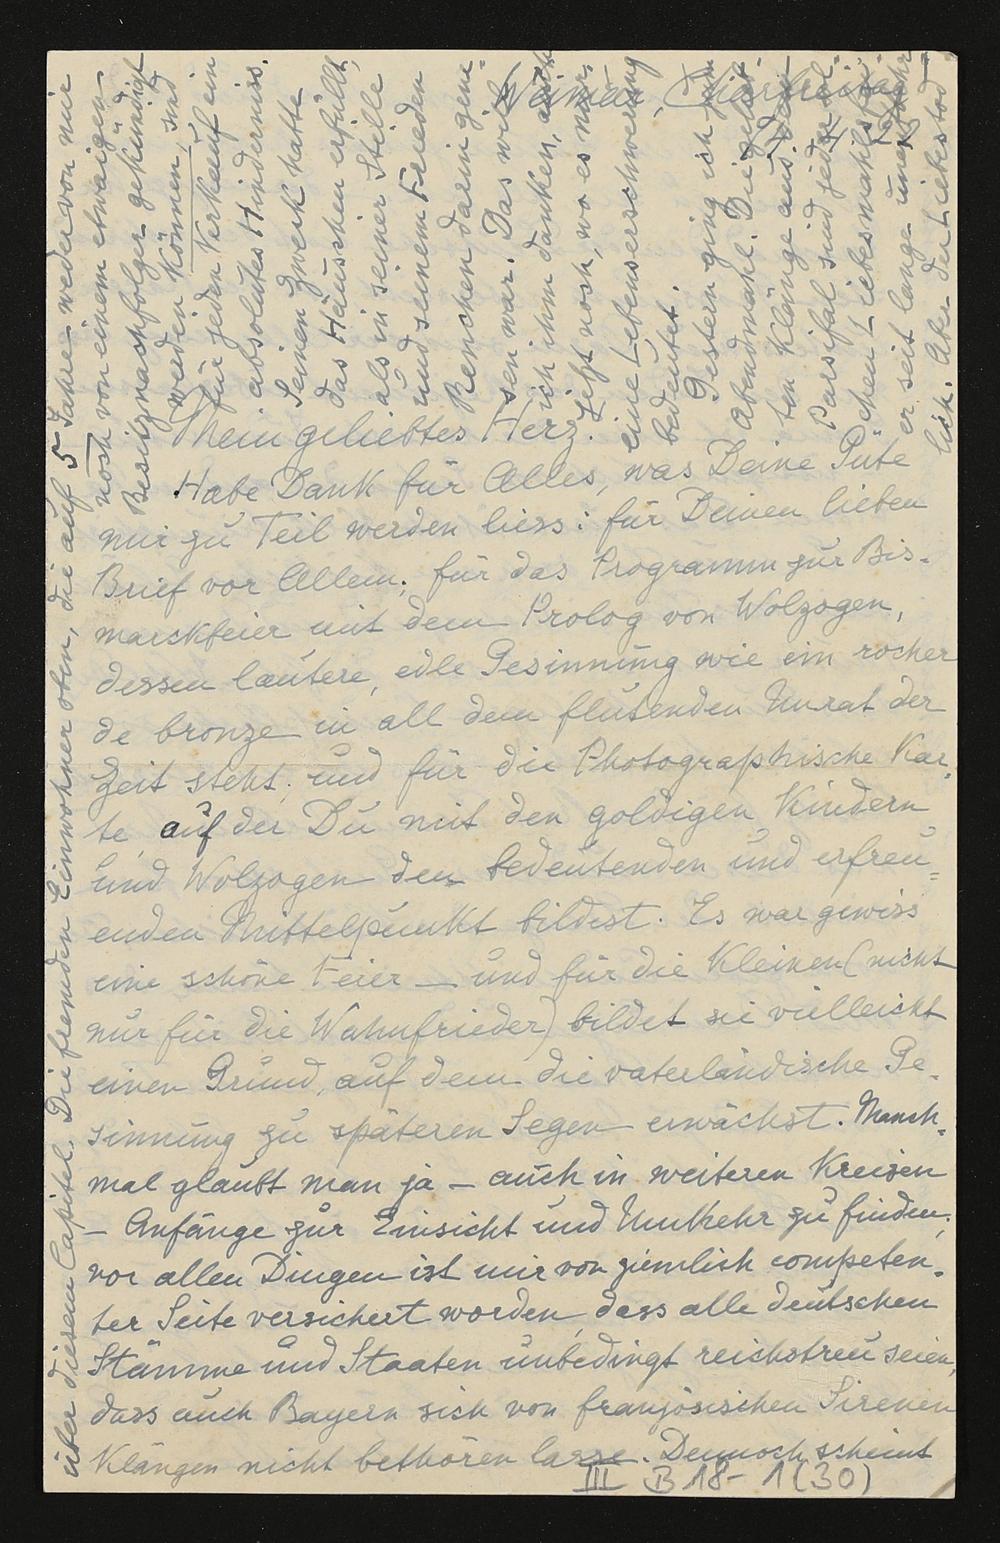 Weimar, Charfreitag
Mein geliebtes Herz.
Habe Dank für Alles, was Deine Güte
mir zu Teil werden liess: für Deinen lieben
Brief vor Allem; für das Programm zur Bis-
marckfeier mit dem Prolog von Wolzogen,
dessen lautere, edle Gesinnung wie ein rocher
de bronze in all dem flutenden Unrat der
Zeit steht; und für die Photographische Kar-
te, auf der Du mit den goldigen Kindern
und Wolzogen den bedeutenden und erfreu-
enden Mittelpunkt bildest. Es war gewiss
eine schöne Feier — und für die Kleinen (nicht
nur für die Wahnfrieder) bildet sie vielleicht
einen Grund, auf dem die vaterländische Ge-
sinnung zu späteren Segen erwächst. Manch-
mal glaubt man ja — auch in weiteren Kreisen
— Anfänge zur Einsicht und Umkehr zu finden;
vor allen Dingen ist mir von ziemlich competen-
ter Seite versichert worden, dass alle deutschen
Stämme und Staaten unbedingt reichstreu seien,
dass auch Bayern sich von französischen Sirenen
Klängen nicht bethören lasse. Dennoch scheint
III B 18-1(30)
über diesem Capitel. Die fremden Einwohner oben, die auf 5 Jahre weder von mir
noch von einem etwaigen
Besitznachfolger gekündigt
werden können, sind
für jeden Verkauf ein
absolutes Hinderniss.
Seinen Zweck hatte
das Häuschen erfüllt,
als in seiner Stille
und seinem Frieden
Benchen darin gene-
sen war. Das will
ich ihm danken, auch
jetzt noch, wo es nur
eine Lebenserschwerung
bedeutet.
Gestern ging ich zum
Abendmahl. Die
ten Klänge aus dem
Parsifal sind jeder
chen Liebesmahls
er seit lange
lich. Aber der Liebestod